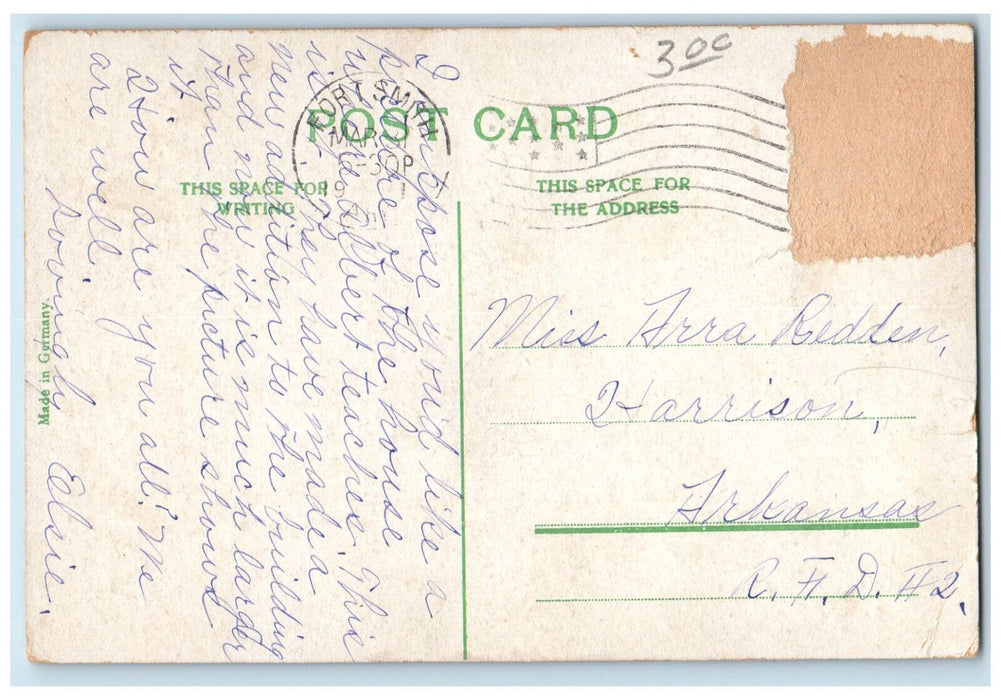 3 00
FORT SMITH
MAR
6-30P
19
POST CARD
THIS SPACE FOR
WRITING
THIS SPACE FOR
THE ADDRESS
Made in Germany.
I supose you'd like a
picture of the house
where Albert teaches. This
is it. They have made a
new addition to the building
and now it is much larger
than the picture shows
it.
How are you all? We
are well.
Lovingly Elsie.
Miss Arra Redden,
Harrison,
Arkansas
R. F. D. #2.